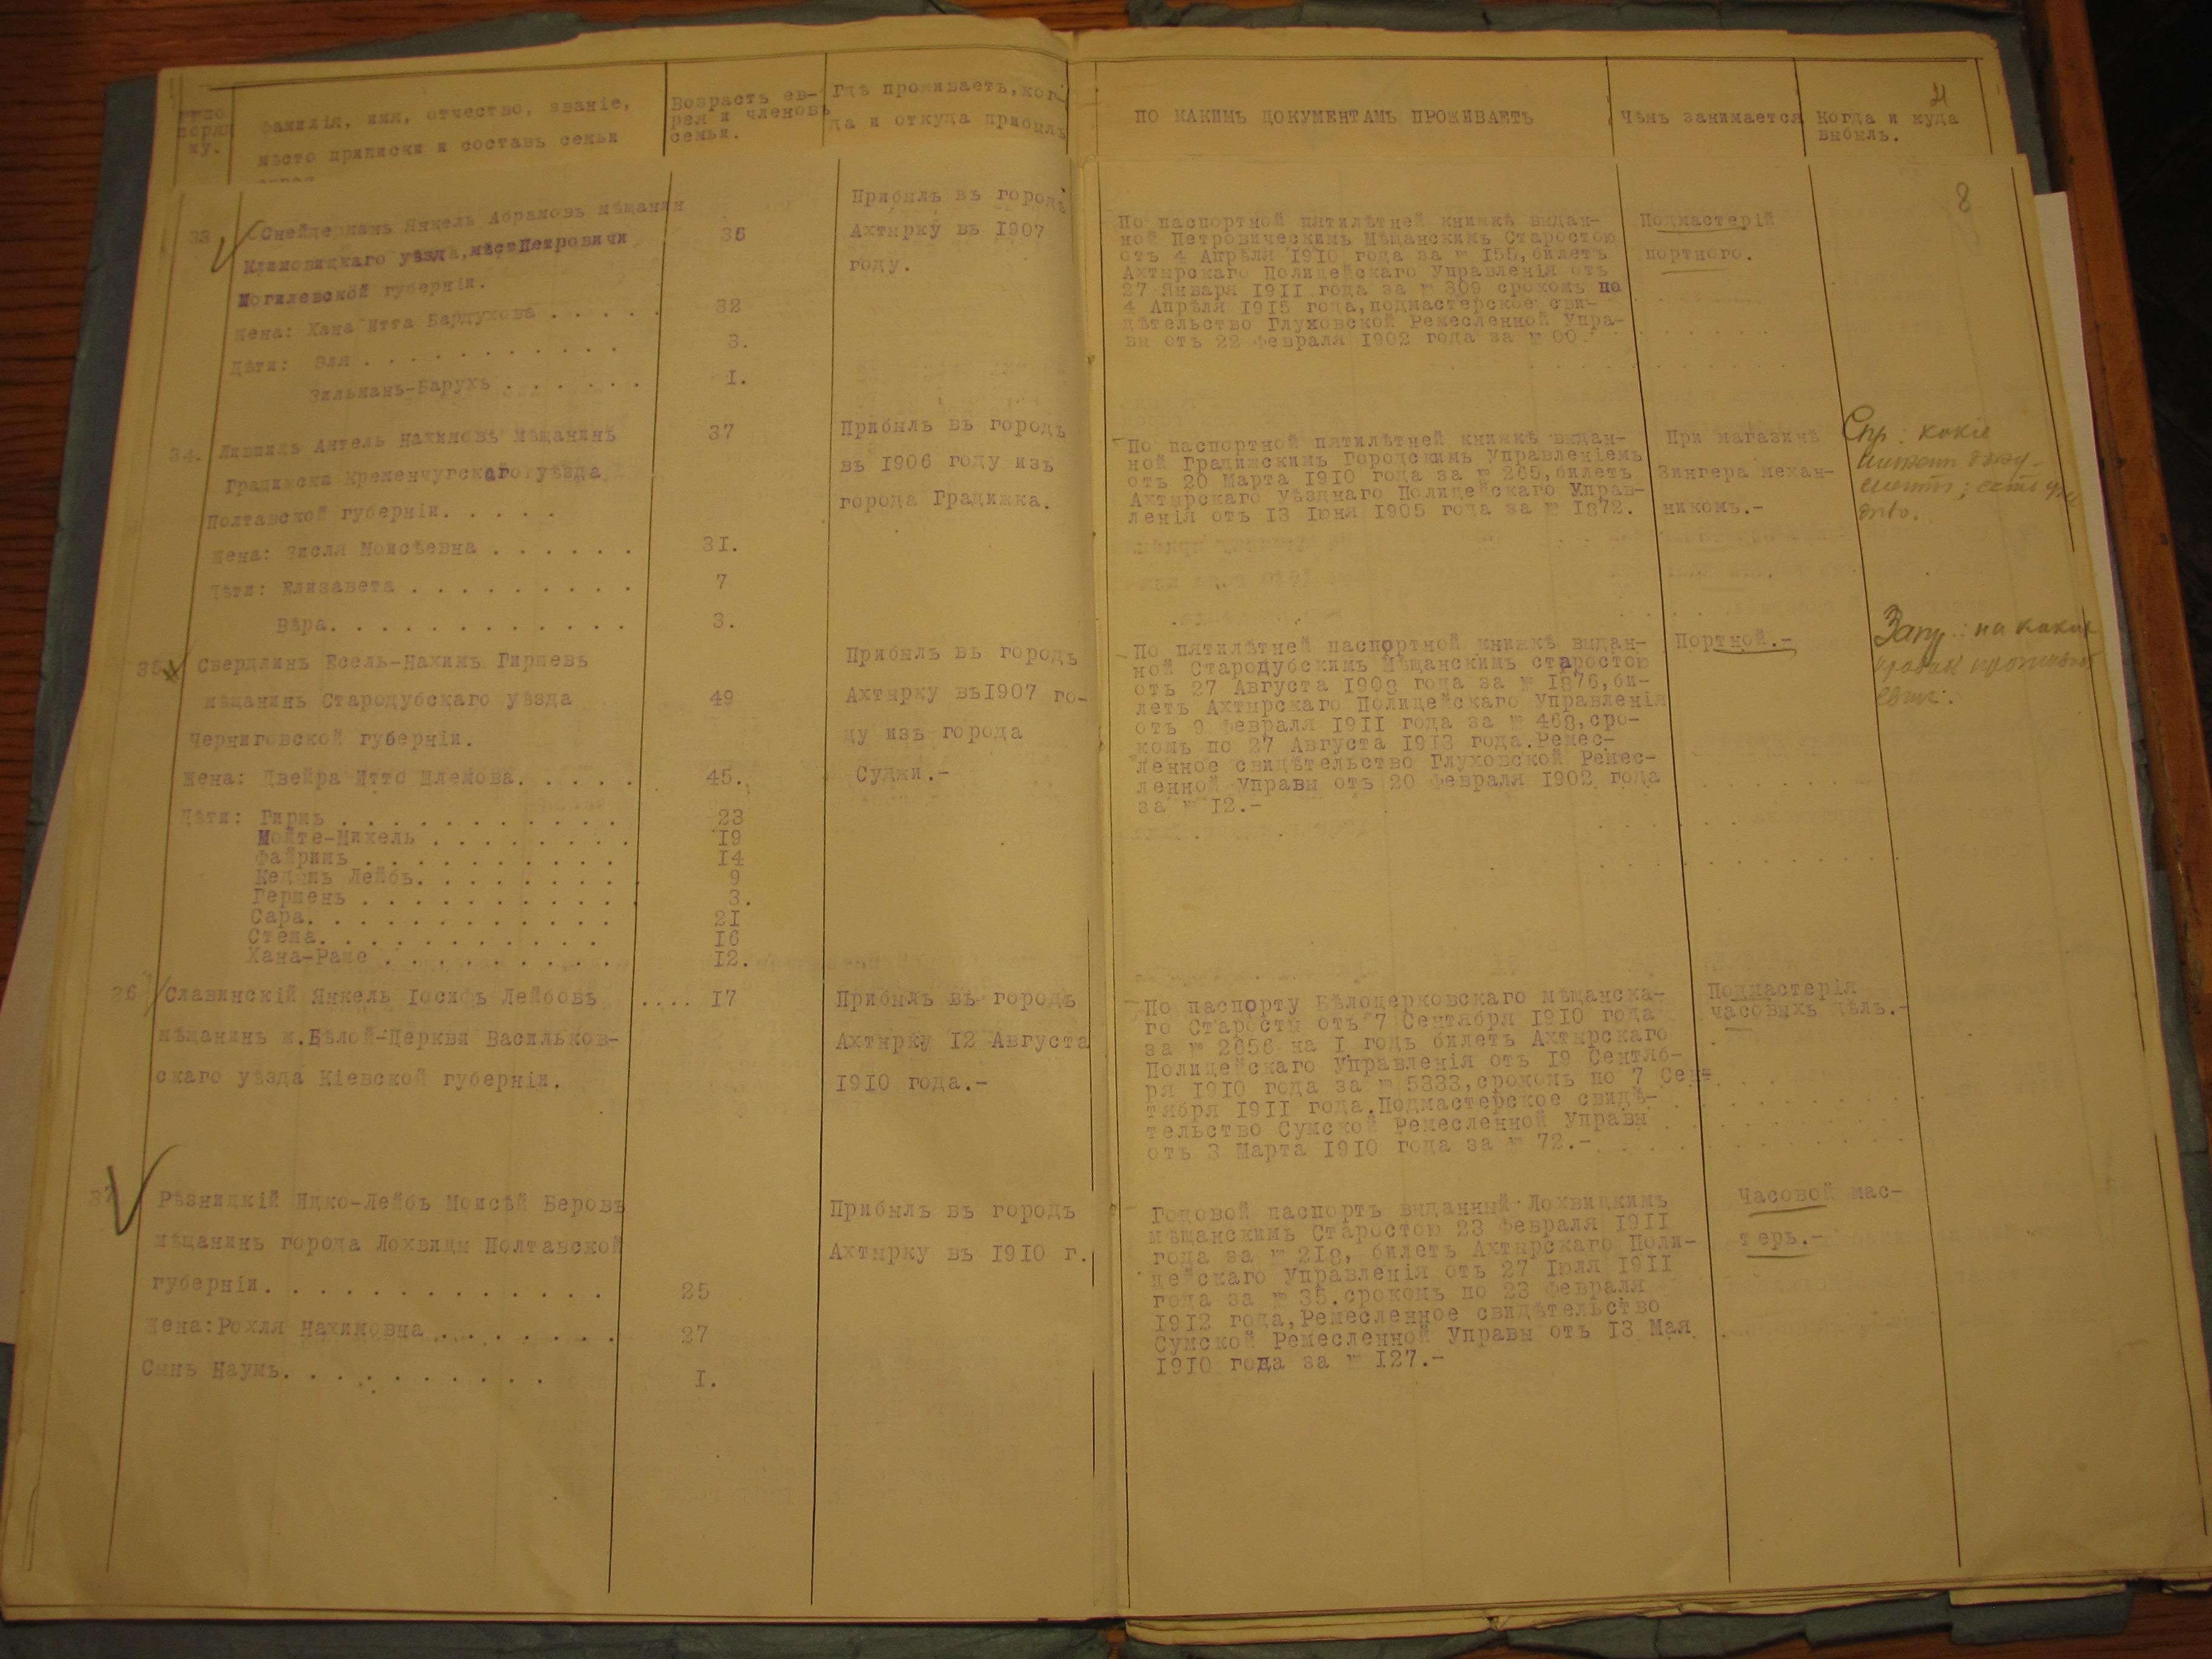 № по
поряд
ку.
Фамилія, имя, отчество, званіе,
мѣсто приписки и составъ семьи
Возрастъ ев-
рея и членовъ
семьи.
Гдѣ проживаетъ, ког-
да и откуда прибылъ
ПО КАКИМЪ ДОКУМЕНТАМЪ ПРОЖИВАЕТЪ
Чѣмъ занимается
Когда и куда
выбылъ.
8
33
Снейдерманъ Янкель Абрамовъ мѣщанин
Климовицкаго уѣзда, мѣст Петровичи
Могилевской губерніи.
Жена: Хана Итта Бардухова . . . . .
Дѣти: Эля . . . . . . . . . . .
Зильманъ-Барухъ . . . . . .
36
32
3.
I.
Прибылъ въ городъ
Ахтырку въ 1907
году.
По паспортной пятилѣтней книжкѣ выдан-
ной Петровическимъ Мѣщанскимъ Старостою
отъ 4 Апрѣля 1910 года за № 155, билетъ
Ахтырскаго Полицейскаго Управленія отъ
27 Января 1911 года за № 309 срокомъ по
4 Апрѣля 1915 года, подмастерское сви-
дѣтельство Глуховской Ремесленной Упра-
вы отъ 22 февраля 1902 года за № 00.
Подмастерій
портного.
34.
Лившицъ Антель Нахимовъ мѣщанинъ
Градижска Кременчугскаго уѣзда
Полтавской губерніи. . . . .
Жена: Зисля Моисѣевна . . . . . .
Дѣти: Елизавета . . . . . . . . .
Вѣра. . . . . . . . . . . .
37
31.
7
3.
Прибылъ въ городъ
въ 1906 году изъ
города Градижка.
По паспортной пятилѣтней книжкѣ выдан-
ной Градижскимъ Городскимъ Управленіемъ
отъ 20 Марта 1910 года за № 265, билетъ
Ахтырскаго уѣзднаго Полицейскаго Управ-
ленія отъ 13 Іюня 1905 года за № 1872.
При магазинѣ
Зингера механ-
никомъ.-
Спр: какіе
35
Свердлинъ Есель-Нахимъ Гиршевъ
мѣщанинъ Стародубскаго уѣзда
Черниговской губерніи.
Жена: Двейра Итто Шлемова. . . . .
Дѣти: Гиршъ . . . . . . . . . . .
Мойте-Михель . . . . . . . . .
Файримъ . . . . . . . . . . .
Лейбъ. . . . . . . . .
Гершенъ . . . . . . . . . . .
Сара. . . . . . . . . . . .
Стеша. . . . . . . . . . .
Хана-Раше . . . . . . . . .
49
45.
23
19
14
9
3.
21
16
12.
Прибылъ въ городъ
Ахтырку въ 1907 го-
ду изъ города
Суджи.-
По пятилѣтней паспортной книжкѣ выдан-
ной Стародубскимъ Мѣщанскимъ старостою
отъ 27 Августа 1908 года за № 1876, би-
летъ Ахтырскаго Полицейскаго Управленія
отъ 9 февраля 1911 года за № 468, сро-
комъ по 27 Августа 1913 года. Ремес-
ленное свидѣтельство Глуховской Ремес-
ленной Управы отъ 20 февраля 1902 года
за № 12.-
Портной.-
на какихъ
правахъ
36
Славинскій Янкель Іосифъ Лейбовъ
мѣщанинъ м. Бѣлой-Церкви Васильков-
скаго уѣзда Кіевской губерніи.
.... 17
Прибылъ въ городъ
Ахтырку 12 Августа
1910 года.-
По паспорту Бѣлоцерковскаго мѣщанска-
го Старосты отъ 7 Сентября 1910 года
за № 2656 на I годъ билетъ Ахтырскаго
Полицейскаго Управленія отъ 19 Сентяб-
ря 1910 года за № 5333, срокомъ по 7 Сен
тября 1911 года. Подмастерское свидѣ-
тельство Сумской Ремесленной Управы
отъ 3 Марта 1910 года за № 72.-
Подмастерія
часовыхъ дѣлъ.-
37
Рѣзницкій Ицко-Лейбъ Моисѣй Беровъ
мѣщанинъ города Лохвицы Полтавской
губерніи. . . . . . . . . . . . . .
Жена: Рохля Нахимовна . . . . . . .
Сынъ Наумъ. . . . . . . . . . .
25
27
I.
Прибылъ въ городъ
Ахтырку въ 1910 г.
Годовой паспортъ выданный Лохвицкимъ
мѣщанскимъ Старостою 23 февраля 1911
года за № 218, билетъ Ахтырскаго Поли-
цейскаго Управленія отъ 27 Іюля 1911
года за № 35. срокомъ по 23 февраля
1912 года, Ремесленное свидѣтельство
Сумской Ремесленной Управы отъ 13 Мая
1910 года за № 127.-
Часовой мас-
теръ.-